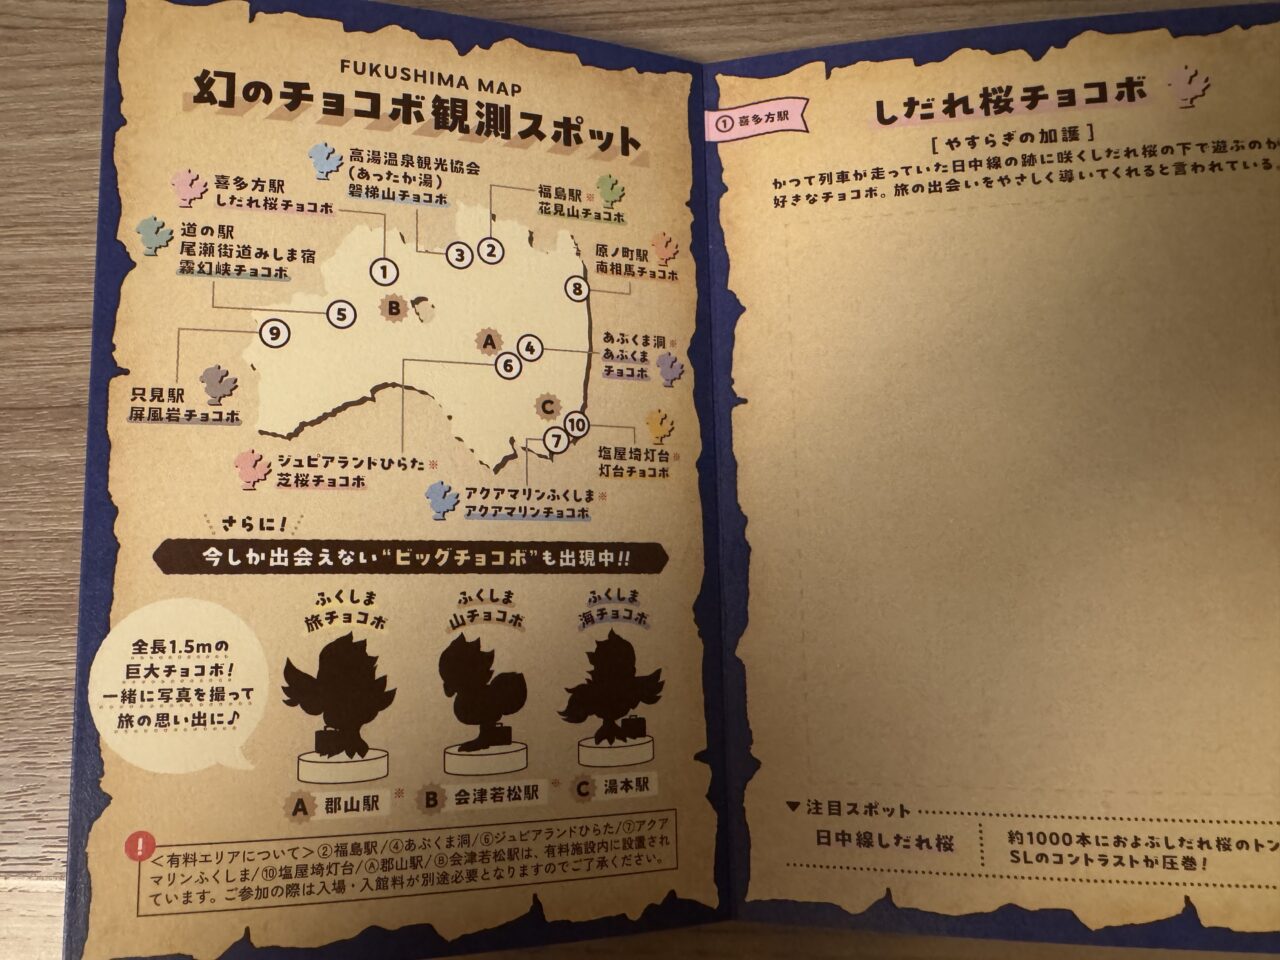 FUKUSHIMA MAP
幻のチョコボ観測スポット
高湯温泉観光協会
(あったか湯)
磐梯山チョコボ
喜多方駅
しだれ桜チョコボ
福島駅※
花見山チョコボ
道の駅
尾瀬街道みしま宿
霧幻峡チョコボ
原ノ町駅
南相馬チョコボ
③
②
①
⑧
B
⑤
⑨
A
④
⑥
あぶくま洞※
あぶくま
チョコボ
只見駅
屏風岩チョコボ
C
⑩
⑦
塩屋埼灯台※
灯台チョコボ
ジュピアランドひらた※
芝桜チョコボ
アクアマリンふくしま※
アクアマリンチョコボ
さらに!
今しか出会えない“ビッグチョコボ”も出現中!!
ふくしま
旅チョコボ
ふくしま
山チョコボ
ふくしま
海チョコボ
全長1.5mの
巨大チョコボ!
一緒に写真を撮って
旅の思い出に♪
A 郡山駅※
B 会津若松駅※
C 湯本駅
!
<有料エリアについて>②福島駅/④あぶくま洞/⑥ジュピアランドひらた/⑦アクア
マリンふくしま/⑩塩屋埼灯台/Ⓐ郡山駅/Ⓑ会津若松駅は、有料施設内に設置され
ています。ご参加の際は入場・入館料が別途必要となりますのでご了承ください。
① 喜多方駅
しだれ桜チョコボ
[やすらぎの加護]
かつて列車が走っていた日中線の跡に咲くしだれ桜の下で遊ぶのが
好きなチョコボ。旅の出会いをやさしく導いてくれると言われている。
▼注目スポット
日中線しだれ桜
約1000本におよぶしだれ桜のトン
SLのコントラストが圧巻!